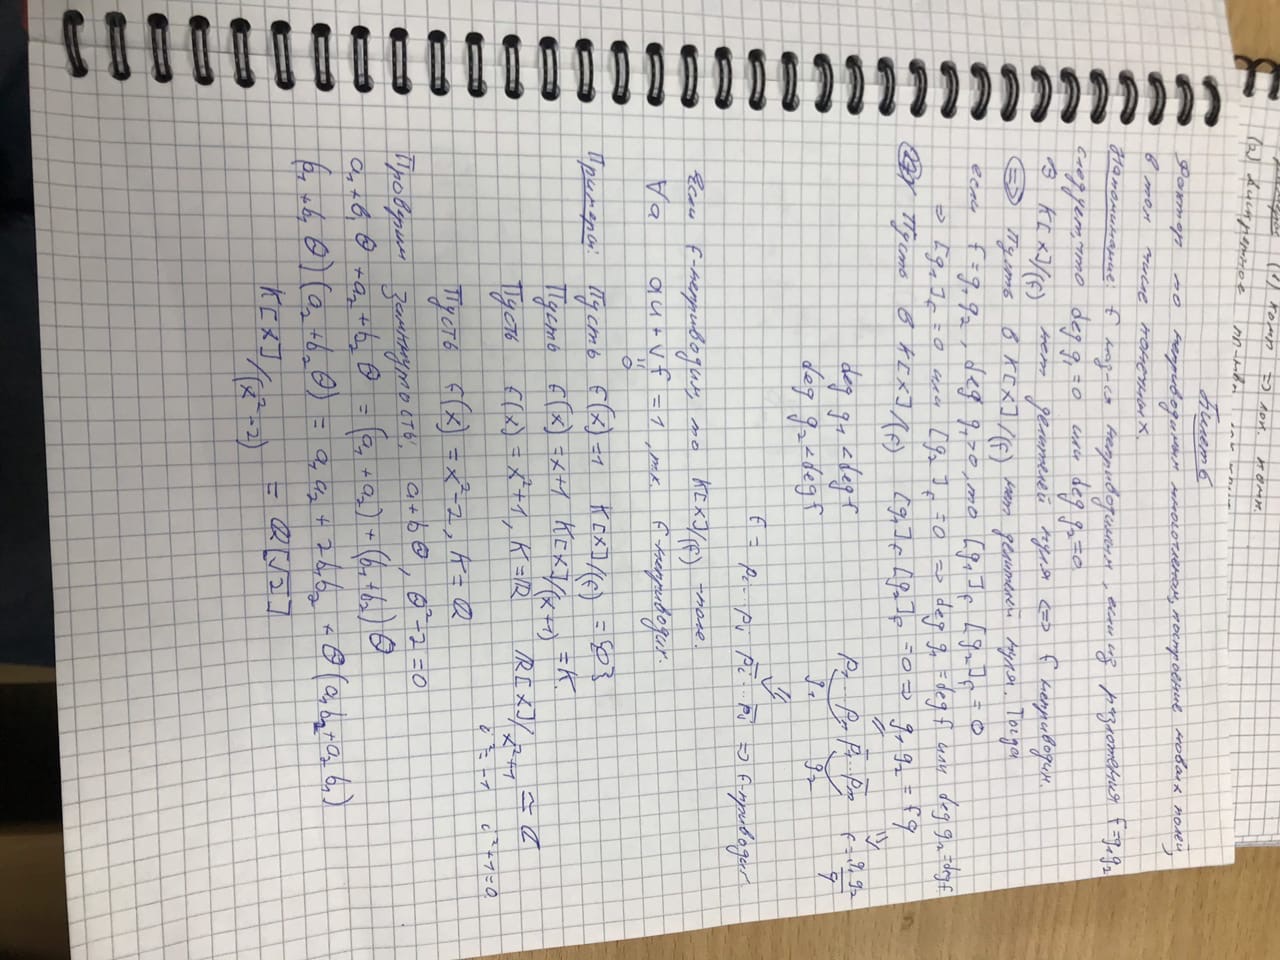 (1) комп => лок. комп.
(2) дискретное пр-тво
Билет 6
Фактор по неприводимым многочленам, построение новых полей,
в том числе конечных.
Напоминание: f наз-ся неприводимым, если из разложения f=g₁g₂
следует, что deg g₁=0 или deg g₂=0.
В K[x]/(f) нет делителей нуля <=> f неприводим.
=> Пусть в K[x]/(f) нет делителей нуля. Тогда
если f=g₁g₂, deg g₁>0, то [g₁]f [g₂]f = 0
=> [g₁]f =0 или [g₂]f =0 => deg g₁=deg f или deg g₂=deg f
Пусть в K[x]/(f) [g₁]f [g₂]f =0 => g₁g₂=fq
deg g₁<deg f p₁...pₙ p̄₁...p̄ₘ f=g₁g₂/q
deg g₂<deg f g₁ g₂
f = pᵢ...pⱼ p̄ᵢ...p̄ⱼ => f-приводим.
Если f-неприводим, то K[x]/(f) -поле.
∀a au+vf=1, т.к. f-неприводим.
0
Примеры: Пусть f(x)=1 K[x]/(f) = {0}
Пусть f(x)=x+1 K[x]/(x+1) =K.
Пусть f(x)=x²+1, K=ℝ ℝ[x]/x²+1 ≃ ℂ
i²=-1 i²+1=0.
Пусть f(x)=x²-2, K=ℚ
Проверим замкнутость: a+bθ, θ²-2=0
a₁+b₁θ+a₂+b₂θ = (a₁+a₂)+(b₁+b₂)θ
(a₁+b₁θ)(a₂+b₂θ) = a₁a₂+2b₁b₂ +θ(a₁b₂+a₂b₁)
K[x]/(x²-2) = ℚ[√2]